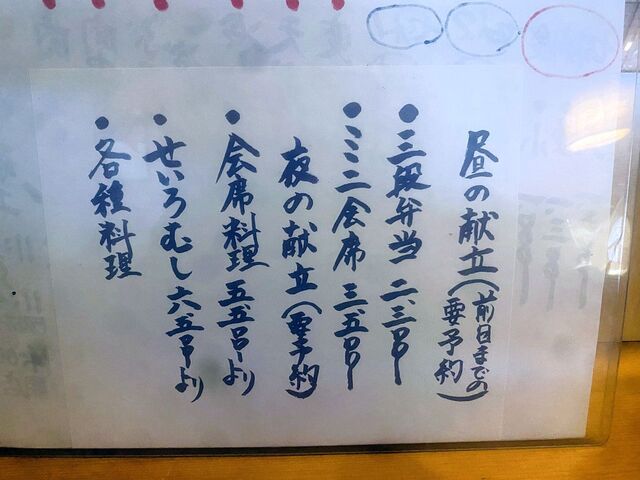 昼の献立(前日までの要予約)
●三段弁当 二、三〇〇ー
●ミニ会席 三、五〇〇ー
夜の献立(要予約)
●会席料理 五、五〇〇ーより
●せいろむし 六、五〇〇ーより
●各種料理